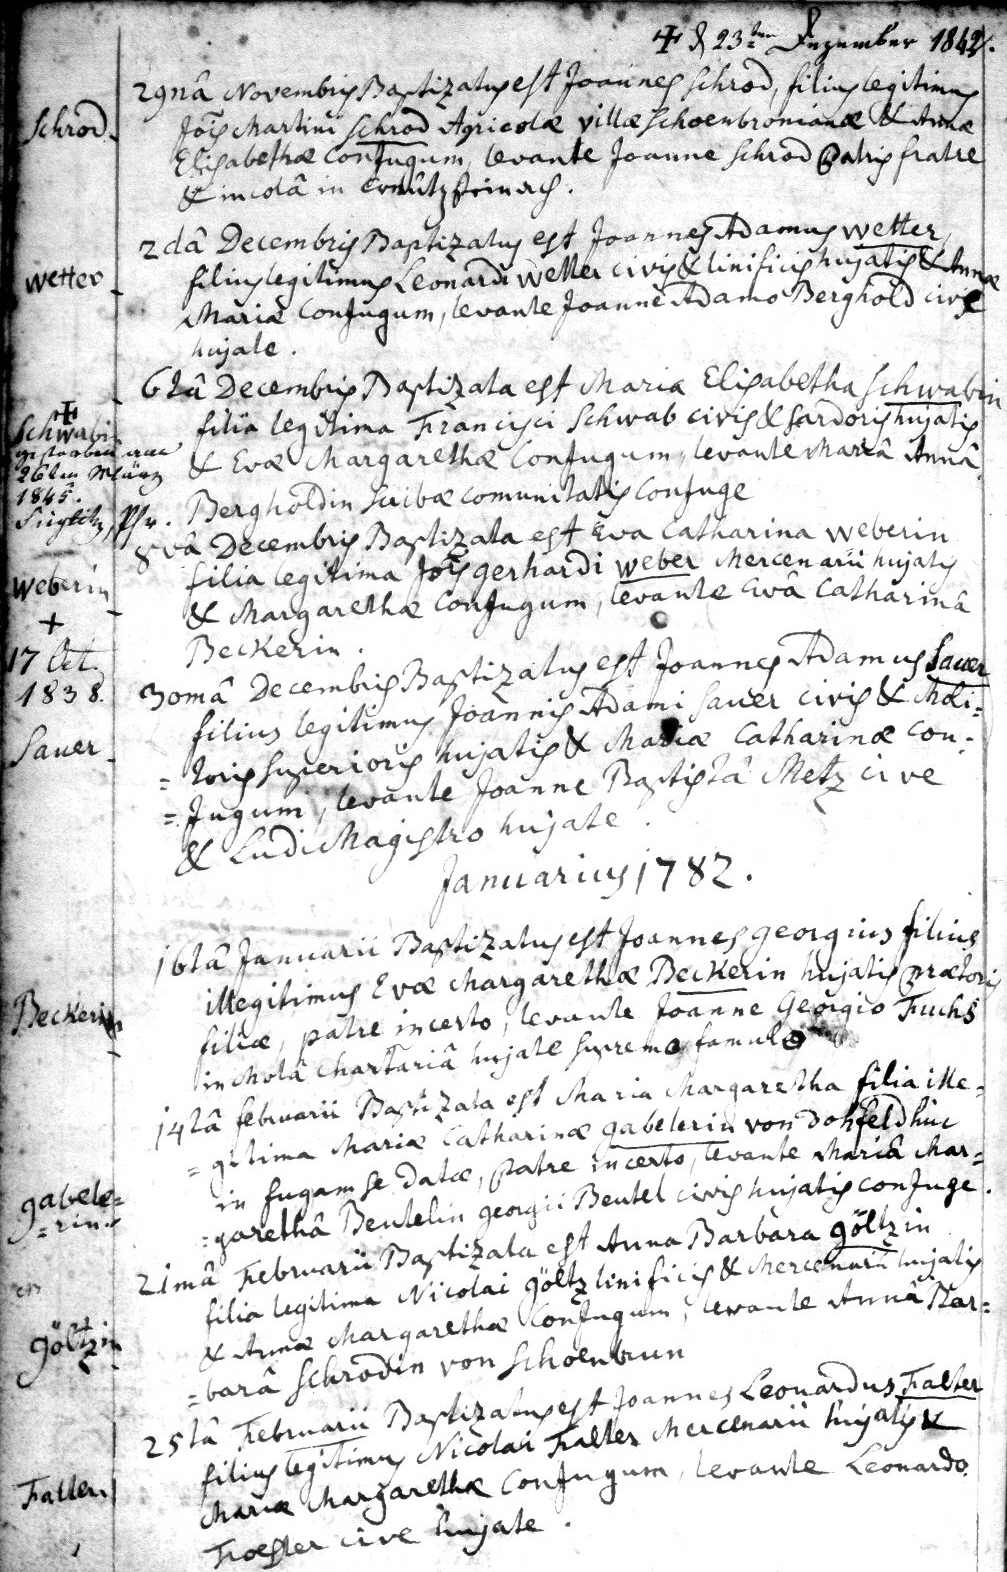 ✠ d 23ten Dezember 1842.
Schrod
29nâ Novembris Baptizatus est Joannes Schrod, filius legitimus
Jois Martini Schrod Agricolæ villæ Schoenbronianæ & Annæ
Elisabethæ Conjugum, levante Joanne Schrod Patris fratre
& incolâ in
Wetter
2dâ Decembris Baptizatus est Joannes Adamus Wetter,
filius legitimus Leonardi Wetter civis & linificis hujatis & Annæ
Mariæ Conjugum, levante Joanne Adamo Berghold cive
hujate.
✠
Schwabin
gestorben am
26ten März
1845.
Pfr.
6tâ Decembris Baptizata est Maria Elisabetha Schwabin
filia legitima Francisci Schwab civis & sardoris hujatis
& Evæ Margarethæ Conjugum, levante Mariâ Annâ
Bergholdin scribæ comunitatis Conjuge
Weberin
+
17 Oct.
1838.
8vâ Decembris Baptizata est Eva Catharina Weberin
filia legitima Jois gerhardi Weber Mercenarii hujatis
& Margarethæ Conjugum, levante Evâ Catharinâ
Beckerin.
Sauer
30mâ Decembris Baptizatus est Joannes Adamus Sauer
filius legitimus Joannis Adami Sauer civis & Moli=
=toris superioris hujatis & Mariæ Catharinæ Con=
=jugum, levante Joanne Baptistâ Metz cive
& LudiMagistro hujate.
Januarius 1782.
Beckerin
16tâ Januarii Baptizatus est Joannes georgius filius
illegitimus Evæ Margarethæ Beckerin hujatis prætoris
filiæ, patre incerto, levante Joanne Georgio Fuchs
in Molâ Chartariâ hujate supremo famulo
gabele=
=rin
14tâ februarii Baptizata est Maria Margaretha filia ille=
=gitima Mariæ Catharinæ gabelerin von Dohfeld huc
in fugam se datæ, Patre incerto, levante Mariâ Mar=
=garethâ Beutelin georgii Beutel civis hujatis conjuge.
göltzin
21mâ Februarii Baptizata est Anna Barbara göltzin
filia legitima Nicolai göltz linificis & Mercenarii hujatis
& Annæ Margarethæ Conjugum, levante Annâ Bar=
=barâ Schrodin von Schoenbrun
Falter
25tâ Februarii Baptizatus est Joannes Leonardus Falter
filius legitimus Nicolai Falter Mercenarii hujatis &
Mariæ Margarethæ Conjugum, levante Leonardo
Foester cive hujate.